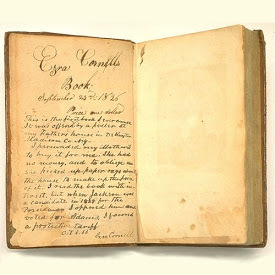 Ezra Cornell's
Book
September 24th 1826
Price one dollar
This is the first book I ever owned
It was offered by a pedler at
my Fathers house in DeRuyter
Madison Co. N.Y.
I persuaded my Mother
to buy it for me. She had
no money, and to oblige me
she picked up paper rags about
the house to make up the price
of it. I read the book with in-
terest, but when Jackson was
a candidate in 1828 for the
Presidency I opposed him and
voted for Adams & favord
a protective tariff
Ezra Cornell